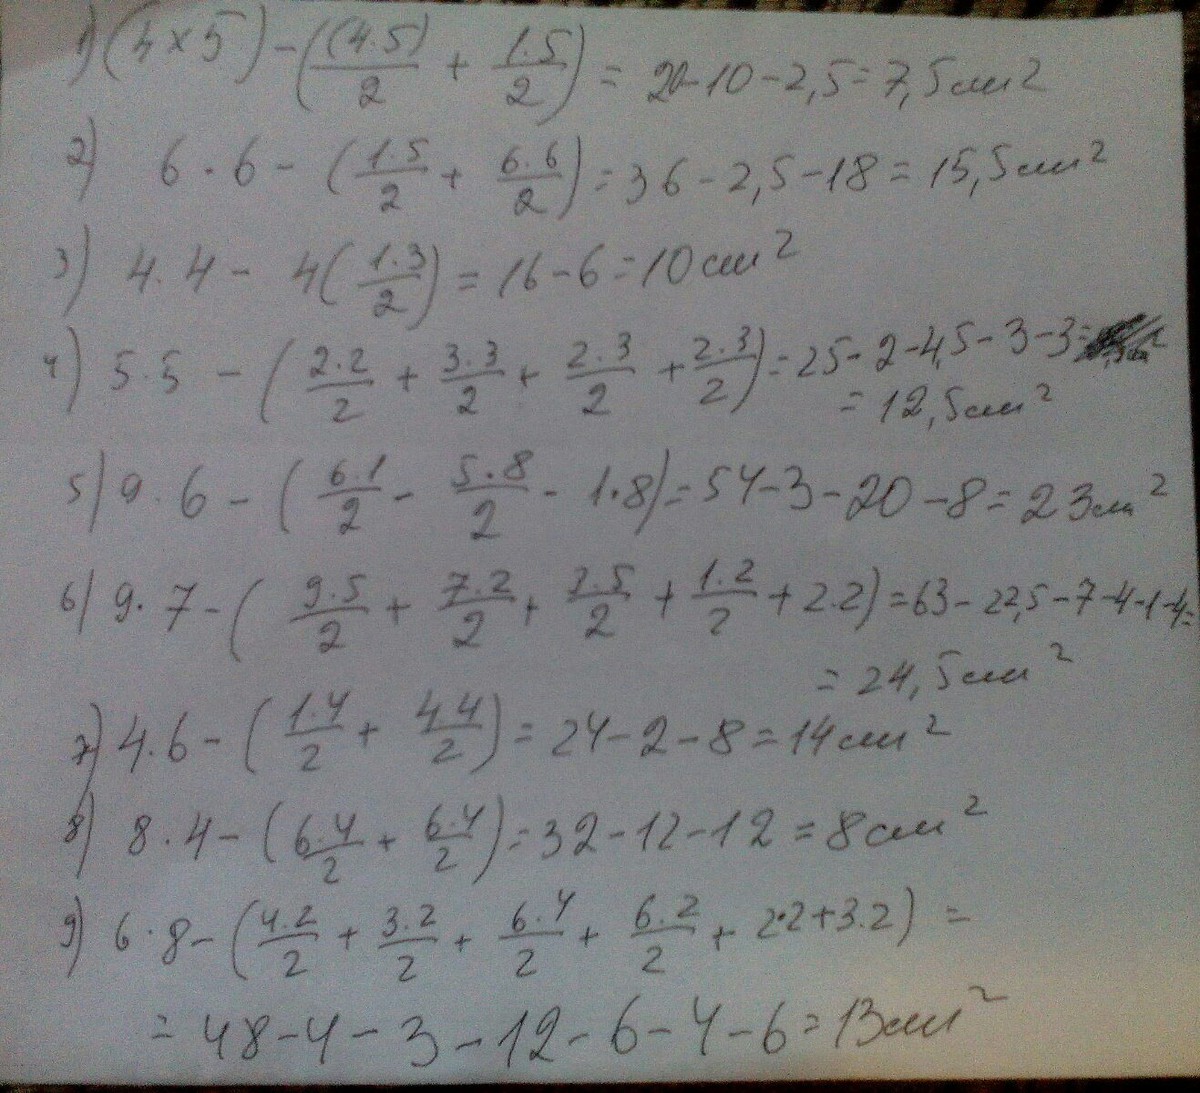 1) (4×5)-((4.5)/2 + 1.5/2) = 20-10-2,5=7,5см²
2) 6.6-(1.5/2 + 6.6/2)=36-2,5-18=15,5см²
3) 4.4- 4(1.3/2)=16-6=10см²
4) 5.5-(2.2/2 + 3.3/2 + 2.3/2 + 2.3/2)=25-2-4,5-3-3=
=12,5см²
5) 9.6-(6.1/2 - 5.8/2 - 1.8)=54-3-20-8=23см²
6) 9.7-(9.5/2 + 7.2/2 + 2.5/2 + 1.2/2 + 2.2)=63-22,5-7-4-1-4=
=24,5см²
7) 4.6-(1.4/2 + 44/2)=24-2-8=14см²
8) 8.4-(6.4/2 + 6.4/2)=32-12-12=8см²
9) 6.8-(4.2/2 + 3.2/2 + 6.4/2 + 6.2/2 + 2.2+3.2)=
=48-4-3-12-6-4-6=13см²